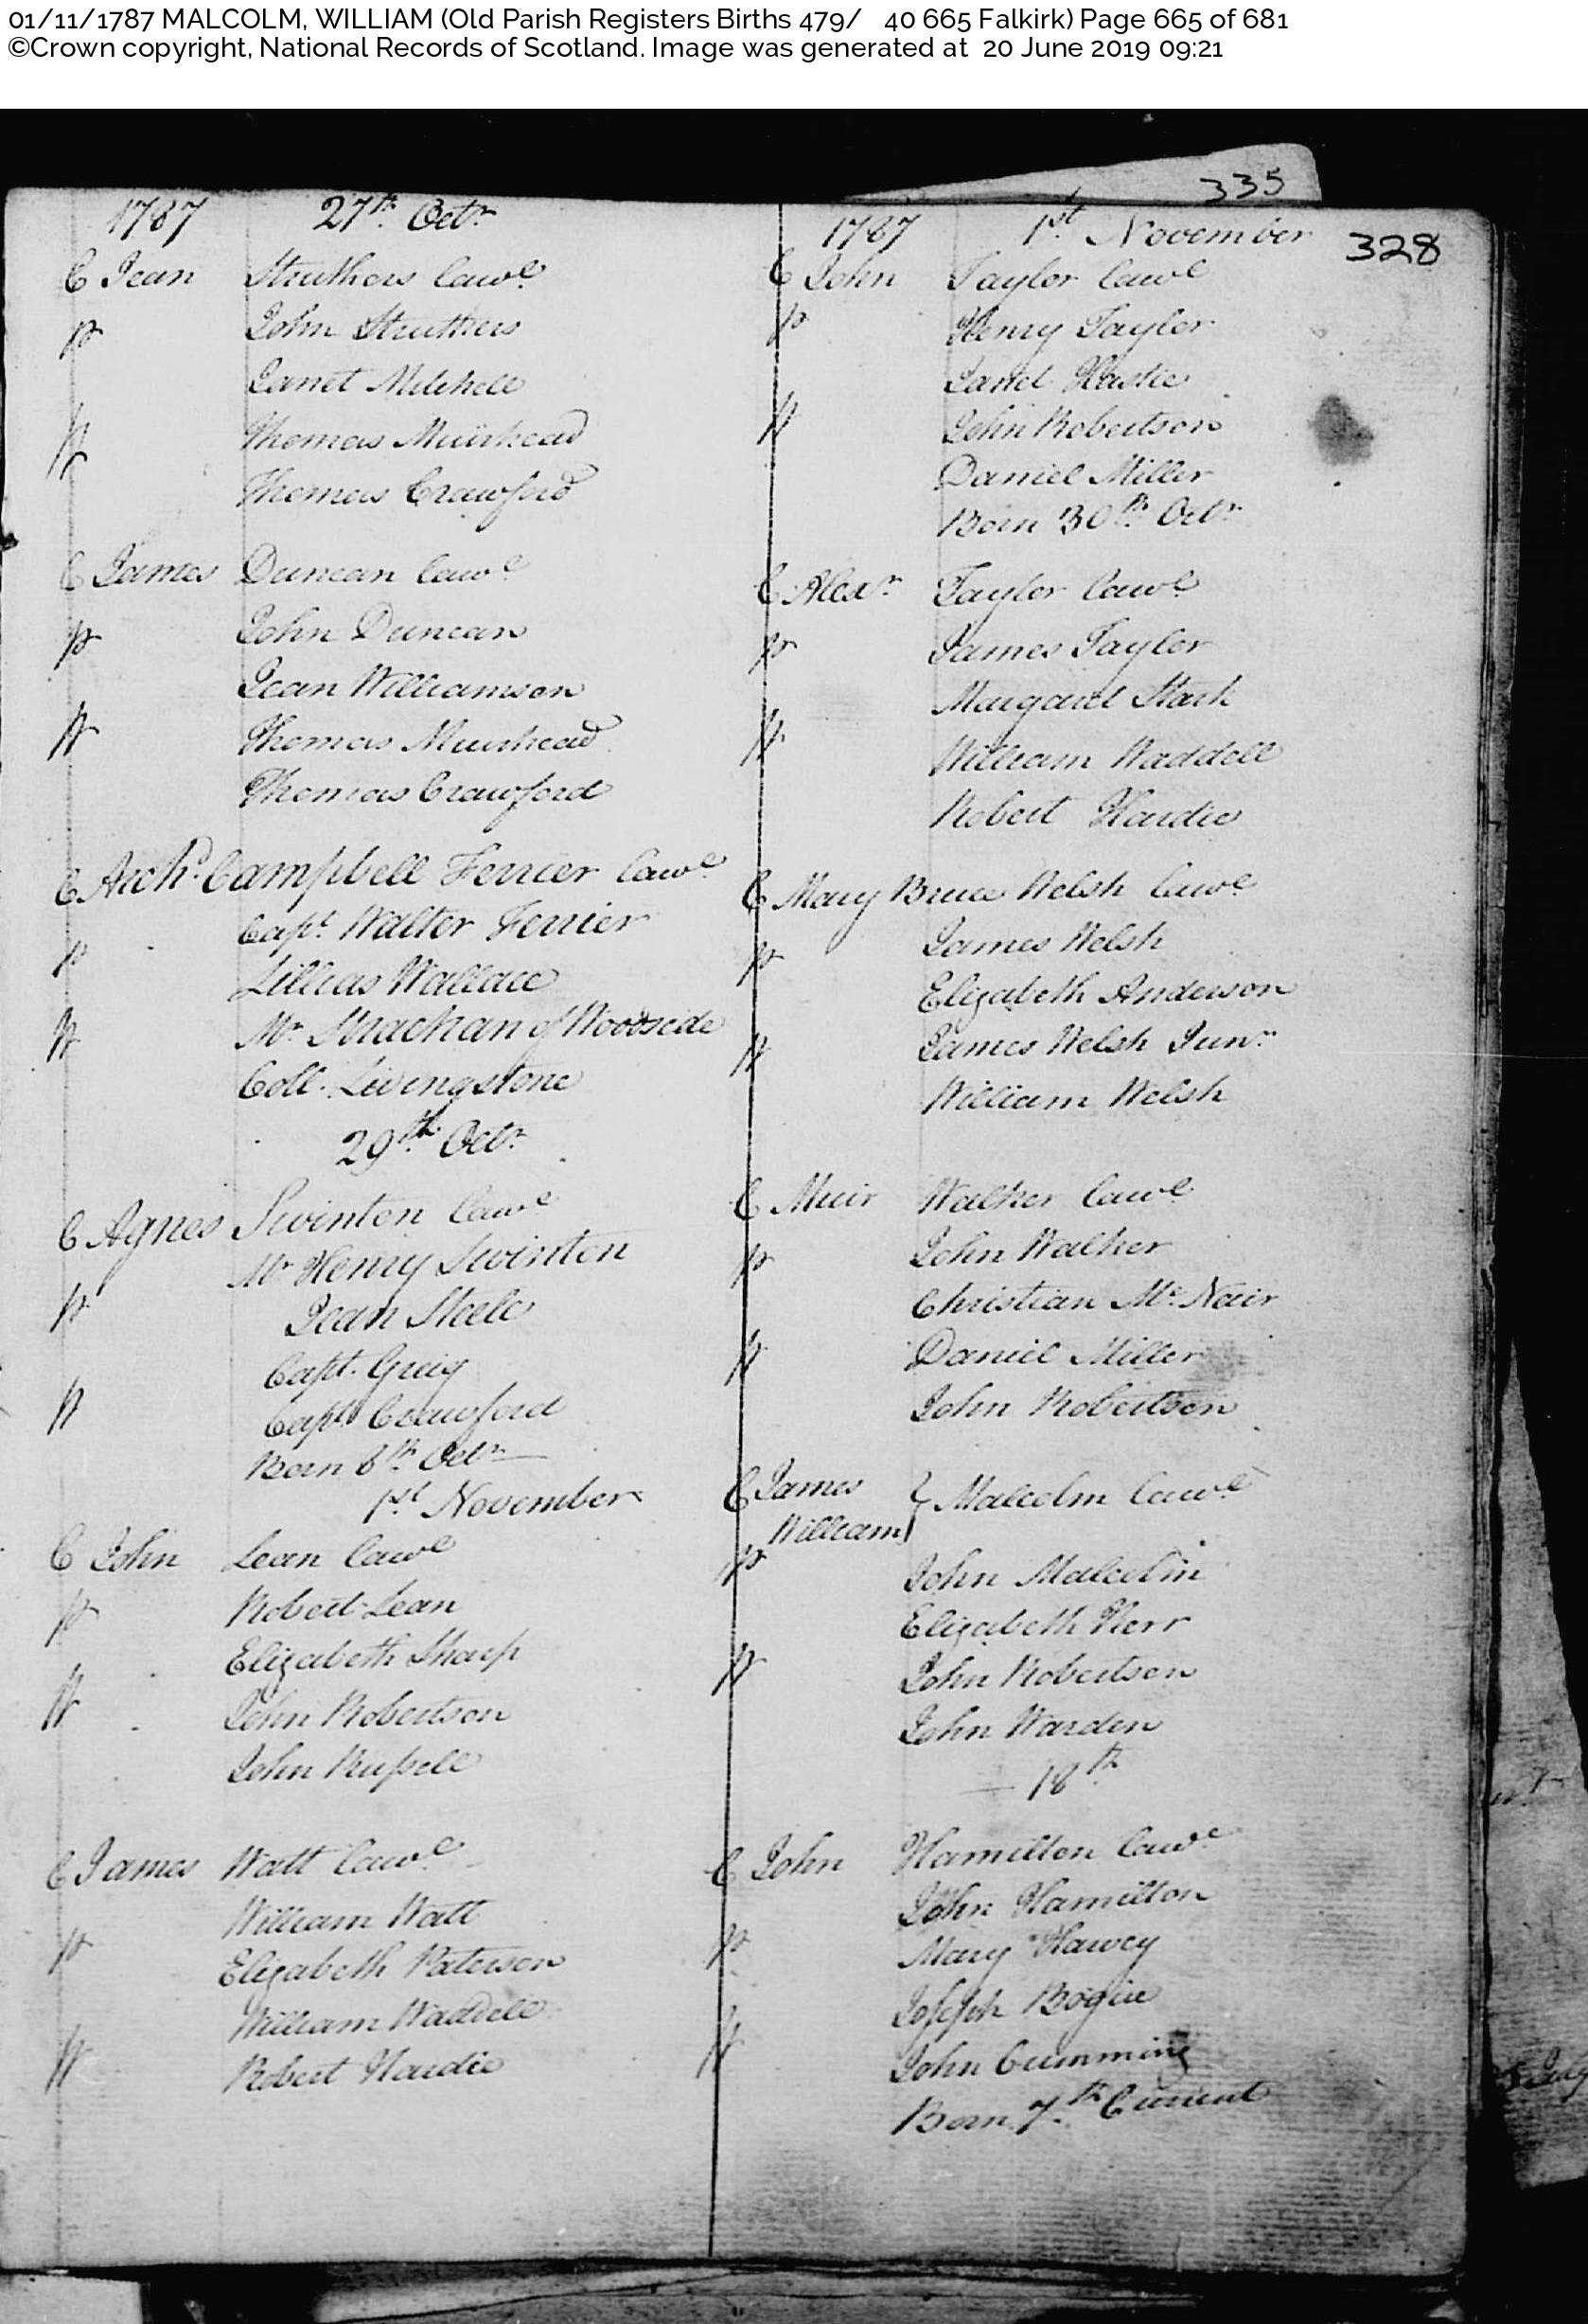 01/11/1787 MALCOLM, WILLIAM (Old Parish Registers Births 479/ 40 665 Falkirk) Page 665 of 681
©Crown copyright, National Records of Scotland. Image was generated at 20 June 2019 09:21
335
328
1787 27th Octr
C Jean Struthers Lawl
p John Struthers
Janet Mitchell
W Thomas Muirhead
Thomas Crawford
C James Duncan Lawl
p John Duncan
Jean Williamson
W Thomas Muirhead
Thomas Crawford
C Archd Campbell Ferrier Lawl
p Capt. Walter Ferrier
Lillias Wallace
W Mr Strachan of Woodside
Coll. Livingstone
29th Octr
C Agnes Swinton Lawl
p Mr Henry Swinton
Jean Steele
W Capt. Greig
Capt Crawford
Born 6th Octr
1st November
C John Lean Lawl
p Robert Lean
Elizabeth Sharp
W John Robertson
John Russell
C James Watt Lawl
p William Watt
Elizabeth Paterson
W William Waddell
Robert Hardie
1787 1st November
C John Taylor Lawl
p Henry Taylor
Janet Hastie
W John Robertson
Daniel Miller
Born 30th Octr
C Alexr Taylor Lawl
p James Taylor
Margaret Stark
W William Waddell
Robert Hardie
C Mary Bruce Welsh Lawl
p James Welsh
Elizabeth Anderson
W James Welsh Junr
William Welsh
C Muir Walker Lawl
p John Walker
Christian Mc Nair
W Daniel Miller
John Robertson
C James } Malcolm Lawl
William
p John Malcolm
Elizabeth Kerr
W John Robertson
John Warden
18th
C John Hamilton Lawl
p John Hamilton
Mary Harvey
W Joseph Bogue
John Cumming
Born 7th Current